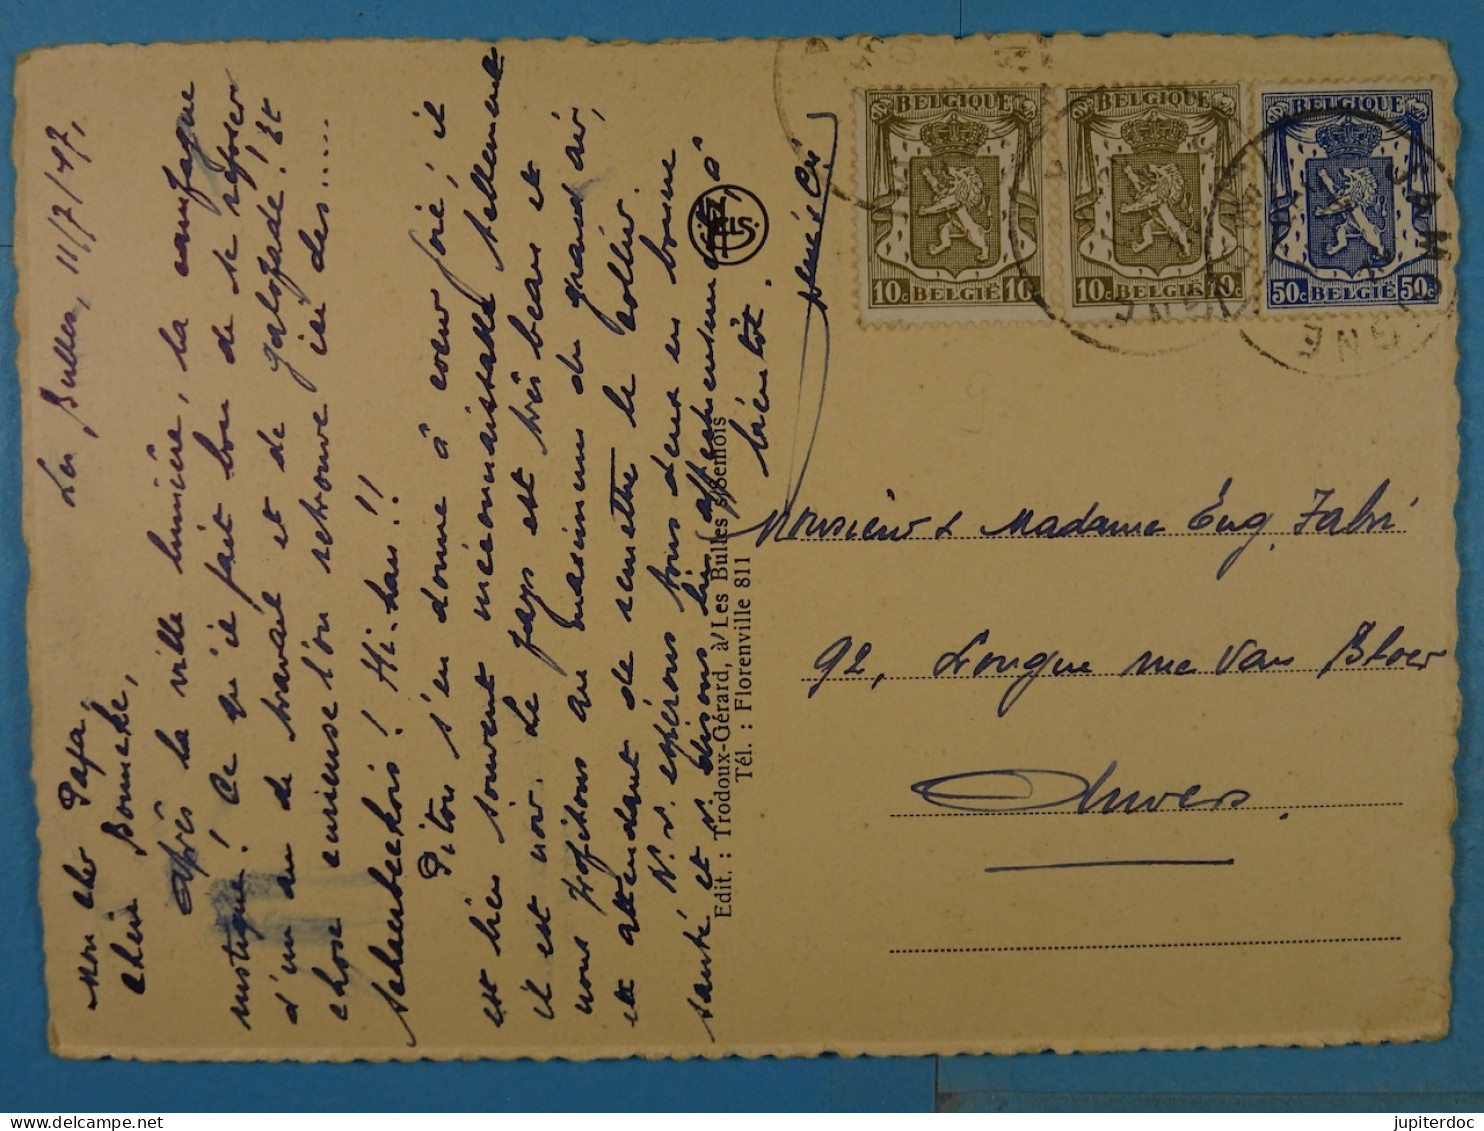 Les Bulles, 11/7/47,
Mon cher Papa,
chère Bonneke,
Après la ville lumière, la campagne
rustique! Ce qu'il fait bon de se reposer
d'un an de travail et de galopade! Et
chose curieuse l'on retrouve ici des.....
schaerbeekois! Hi-han!!
Pitou s'en donne à coeur joie, il
est bien souvent méconnaissable tellement
il est noir. Le pays est très beau et
nous profitons au maximum du grand air,
en attendant de remettre le collier.
N. v. espérons tous deux en bonne
santé et v. disons bien affectueusement à
bientôt.
Edit. : Trodoux-Gérard, à Les Bulles s/Semois
Tél. : Florenville 811
BELGIQUE
10c BELGIË 10c
BELGIQUE
10c BELGIË 10c
BELGIQUE
50c BELGIË 50c
JAMOIGNE
Monsieur & Madame Eug. Fabri
92, Longue rue Van Bloer
Anvers.
jupiterdoc